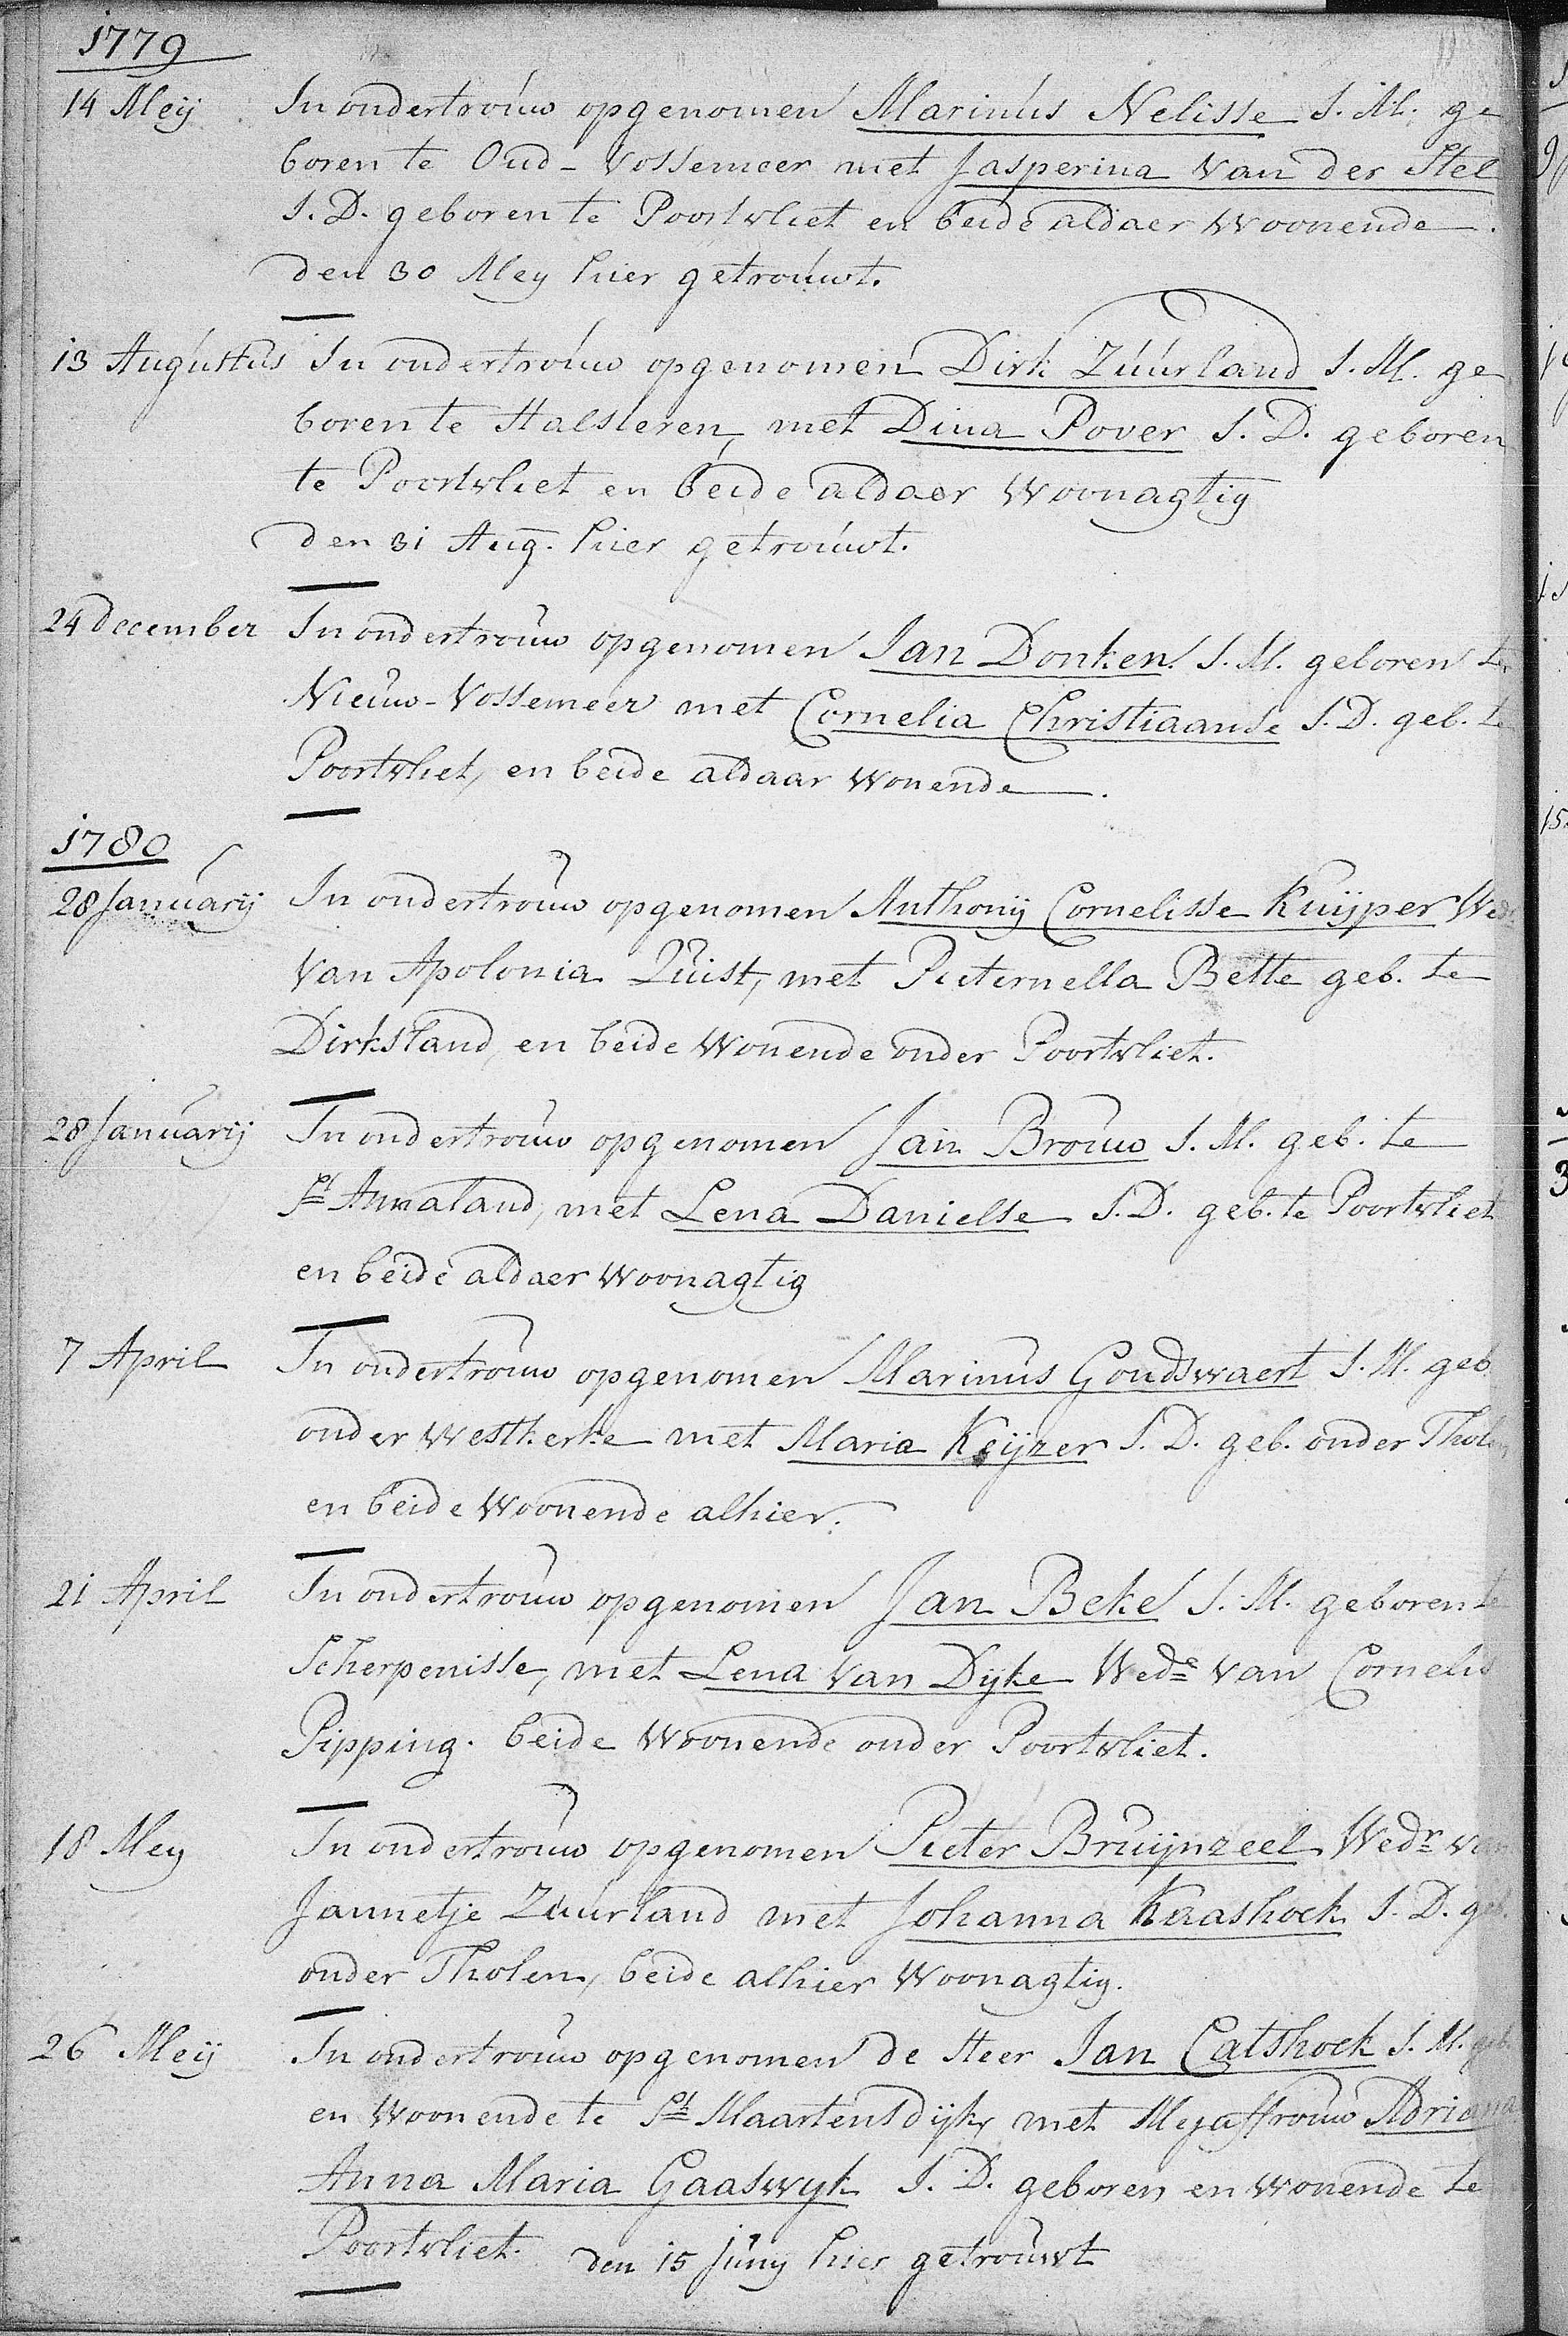 1779
14 Meij In ondertrouw opgenomen Marinus Nelisse J. M. ge
boren te Oud-Vossemeer met Jasperina van der Stel
J. D. geboren te Poortvliet en beide aldaer Woonende.
den 30 Mey hier getrouwt.
13 Augustus In ondertrouw opgenomen Dirk Zuurland J. M. ge
boren te Halsteren, met Dina Pover J. D. geboren
te Poortvliet en beide aldaer Woonagtig
den 31 Aug. hier getrouwt.
24 december In ondertrouw opgenomen Jan Donken J. M. geboren te
Nieuw-Vossemeer met Cornelia Christiaanse J. D. geb. te
Poortvliet, en beide aldaar Wonende.
1780
28 Januarij In ondertrouw opgenomen Anthonij Cornelisse Kuijper Wedr
van Apolonia Quist, met Pieternella Bette geb. te
Dirksland, en beide Wonende onder Poortvliet.
28 Januarij In ondertrouw opgenomen Jan Brouw J. M. geb. te
St Annaland, met Lena Danielse J. D. geb. te Poortvliet
en beide aldaer Woonagtig
7 April In ondertrouw opgenomen Marinus Goudswaert J. M. geb.
onder Westkerke met Maria Keijzer J. D. geb. onder Tholen
en beide Woonende alhier.
21 April In ondertrouw opgenomen Jan Beke J. M. geboren te
Scherpenisse, met Lena van Dyke Wede van Cornelis
Pipping. beide Woonende onder Poortvliet.
18 Mey In ondertrouw opgenomen Pieter Bruijnzeel Wedr van
Jannetje Zuurland met Johanna Kaashoek J. D. geb.
onder Tholen, beide alhier Woonagtig.
26 Meij In ondertrouw opgenomen de Heer Jan Catshoek J. M. geb.
en Woonende te St Maartensdijk, met Mejaffrouw Adriana
Anna Maria Gaaswyk J. D. geboren en wonende te
Poortvliet. den 15 Juny hier getrouwt